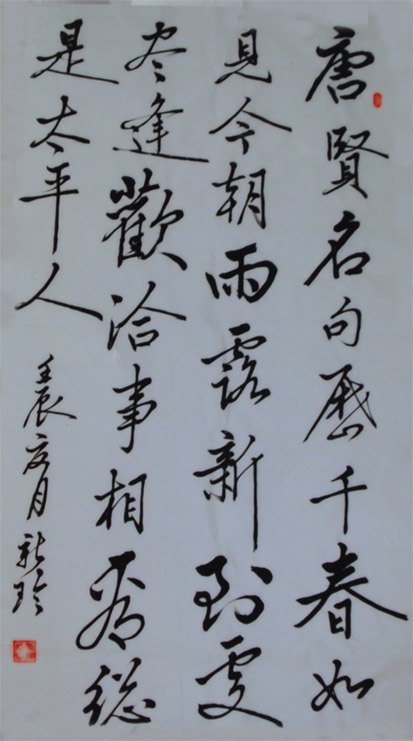 唐賢名句歷千春如
見今朝雨露新到處
尽逢歡洽事相看總
是太平人
壬辰夏月